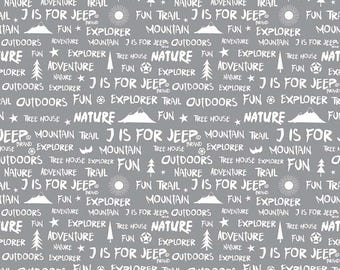 J IS FOR JEEP® FUN TRAIL EXPLORER
OUTDOORS ADVENTURE MOUNTAIN J IS FOR JEEP® FUN
EXPLORER TREE HOUSE NATURE
FUN ADVENTURE NATURE EXPLORER J IS FOR JEEP® BRAND
OUTDOORS FUN EXPLORER MOUNTAIN TRAIL
TREE HOUSE NATURE ADVENTURE
J IS FOR JEEP® BRAND MOUNTAIN TRAIL J IS FOR JEEP®
EXPLORER TREE HOUSE EXPLORER FUN
MOUNTAIN TRAIL J IS FOR JEEP® BRAND FUN TRAIL EXPLORER
OUTDOORS ADVENTURE MOUNTAIN OUTDOORS FUN
EXPLORER TREE HOUSE NATURE
FUN ADVENTURE NATURE EXPLORER J IS FOR JEEP® BRAND
OUTDOORS FUN EXPLORER MOUNTAIN TRAIL